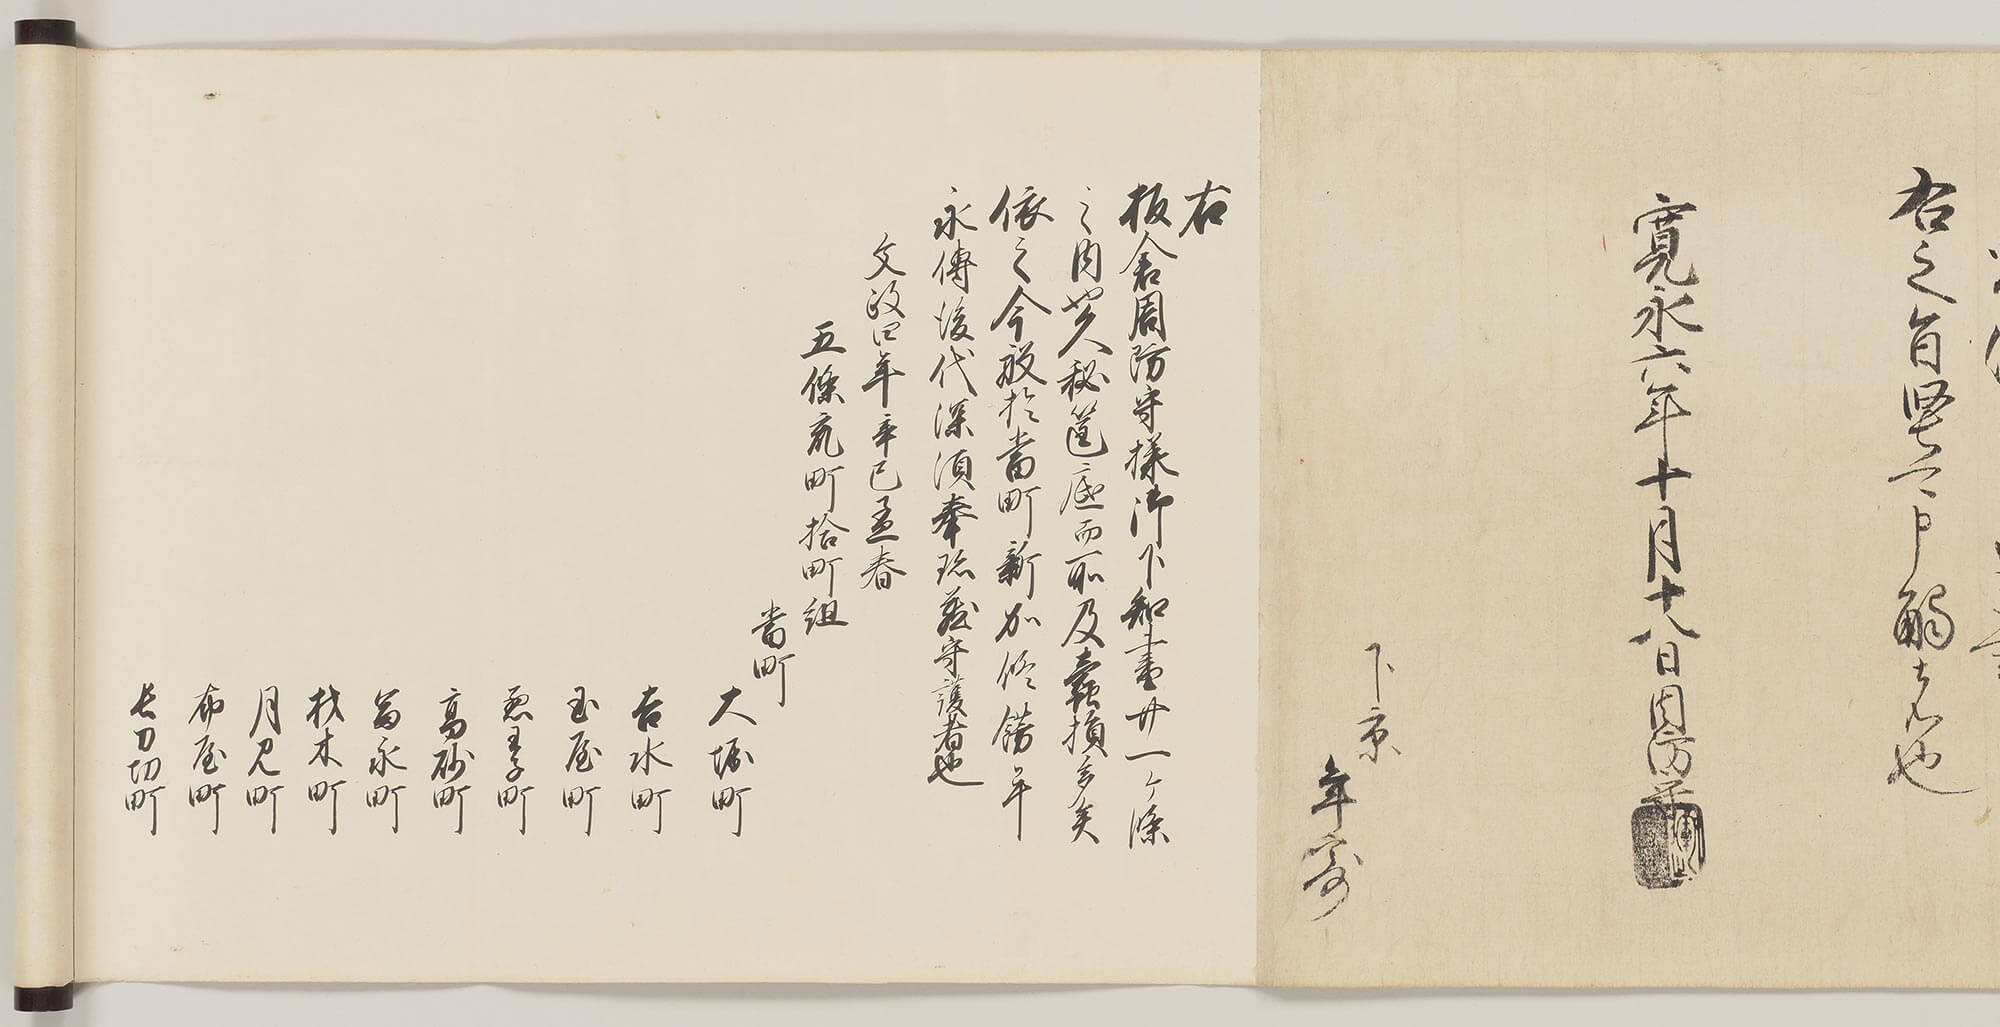 右之旨堅可申觸者也
寛永六年十月十八日周防守
下京
年寄
右
板倉周防守様御下知書廿一ヶ條
之内也久秘篋底而所及蠹損多矣
依之今般於當町新加修餝畢
永傳後代深須奉珍蔵守護者也
文政四年辛巳孟春
五條町拾町組
當町
大堀町
吉水町
玉屋町
悪王子町
高砂町
富永町
材木町
月見町
布屋町
長刀切町